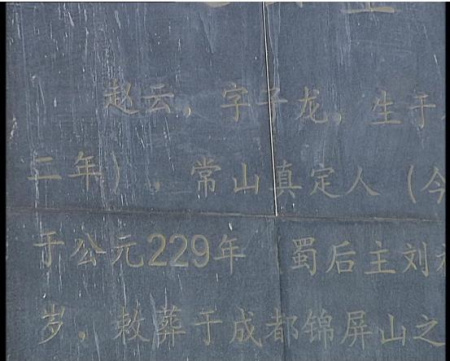 赵云，字子龙，生于
二年），常山真定人（今
于公元229年（蜀后主刘
岁，敕葬于成都锦屏山之